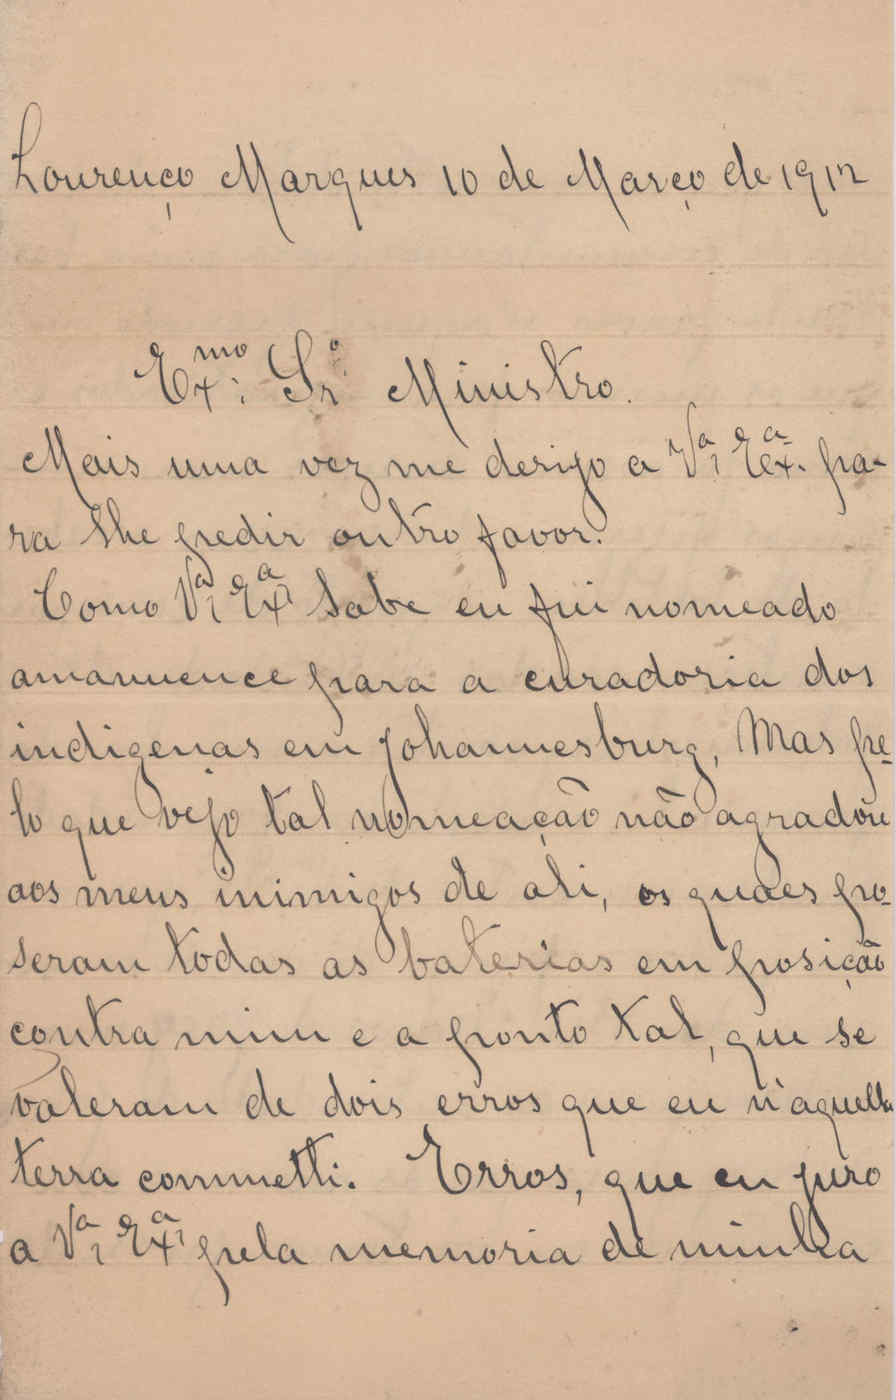 Lourenço Marques 10 de Março de 1912
Exmo. Snr. Ministro.
Mais uma vez me derijo a Va. Exa. pa-
ra lhe pedir outro favor.
Como Va. Exa. sabe eu fui nomeado
amanuence para a curadoria dos
indigenas em Johannesburg, Mas pe-
lo que vejo tal nomeação não agradou
aos meus inimigos de ali, os quaes po-
seram todas as baterias em posição
contra mim e a ponto tal, que se
valeram de dois erros que eu n'aquella
terra commetti. Erros, que eu juro
a Va. Exa. pela memoria de minha